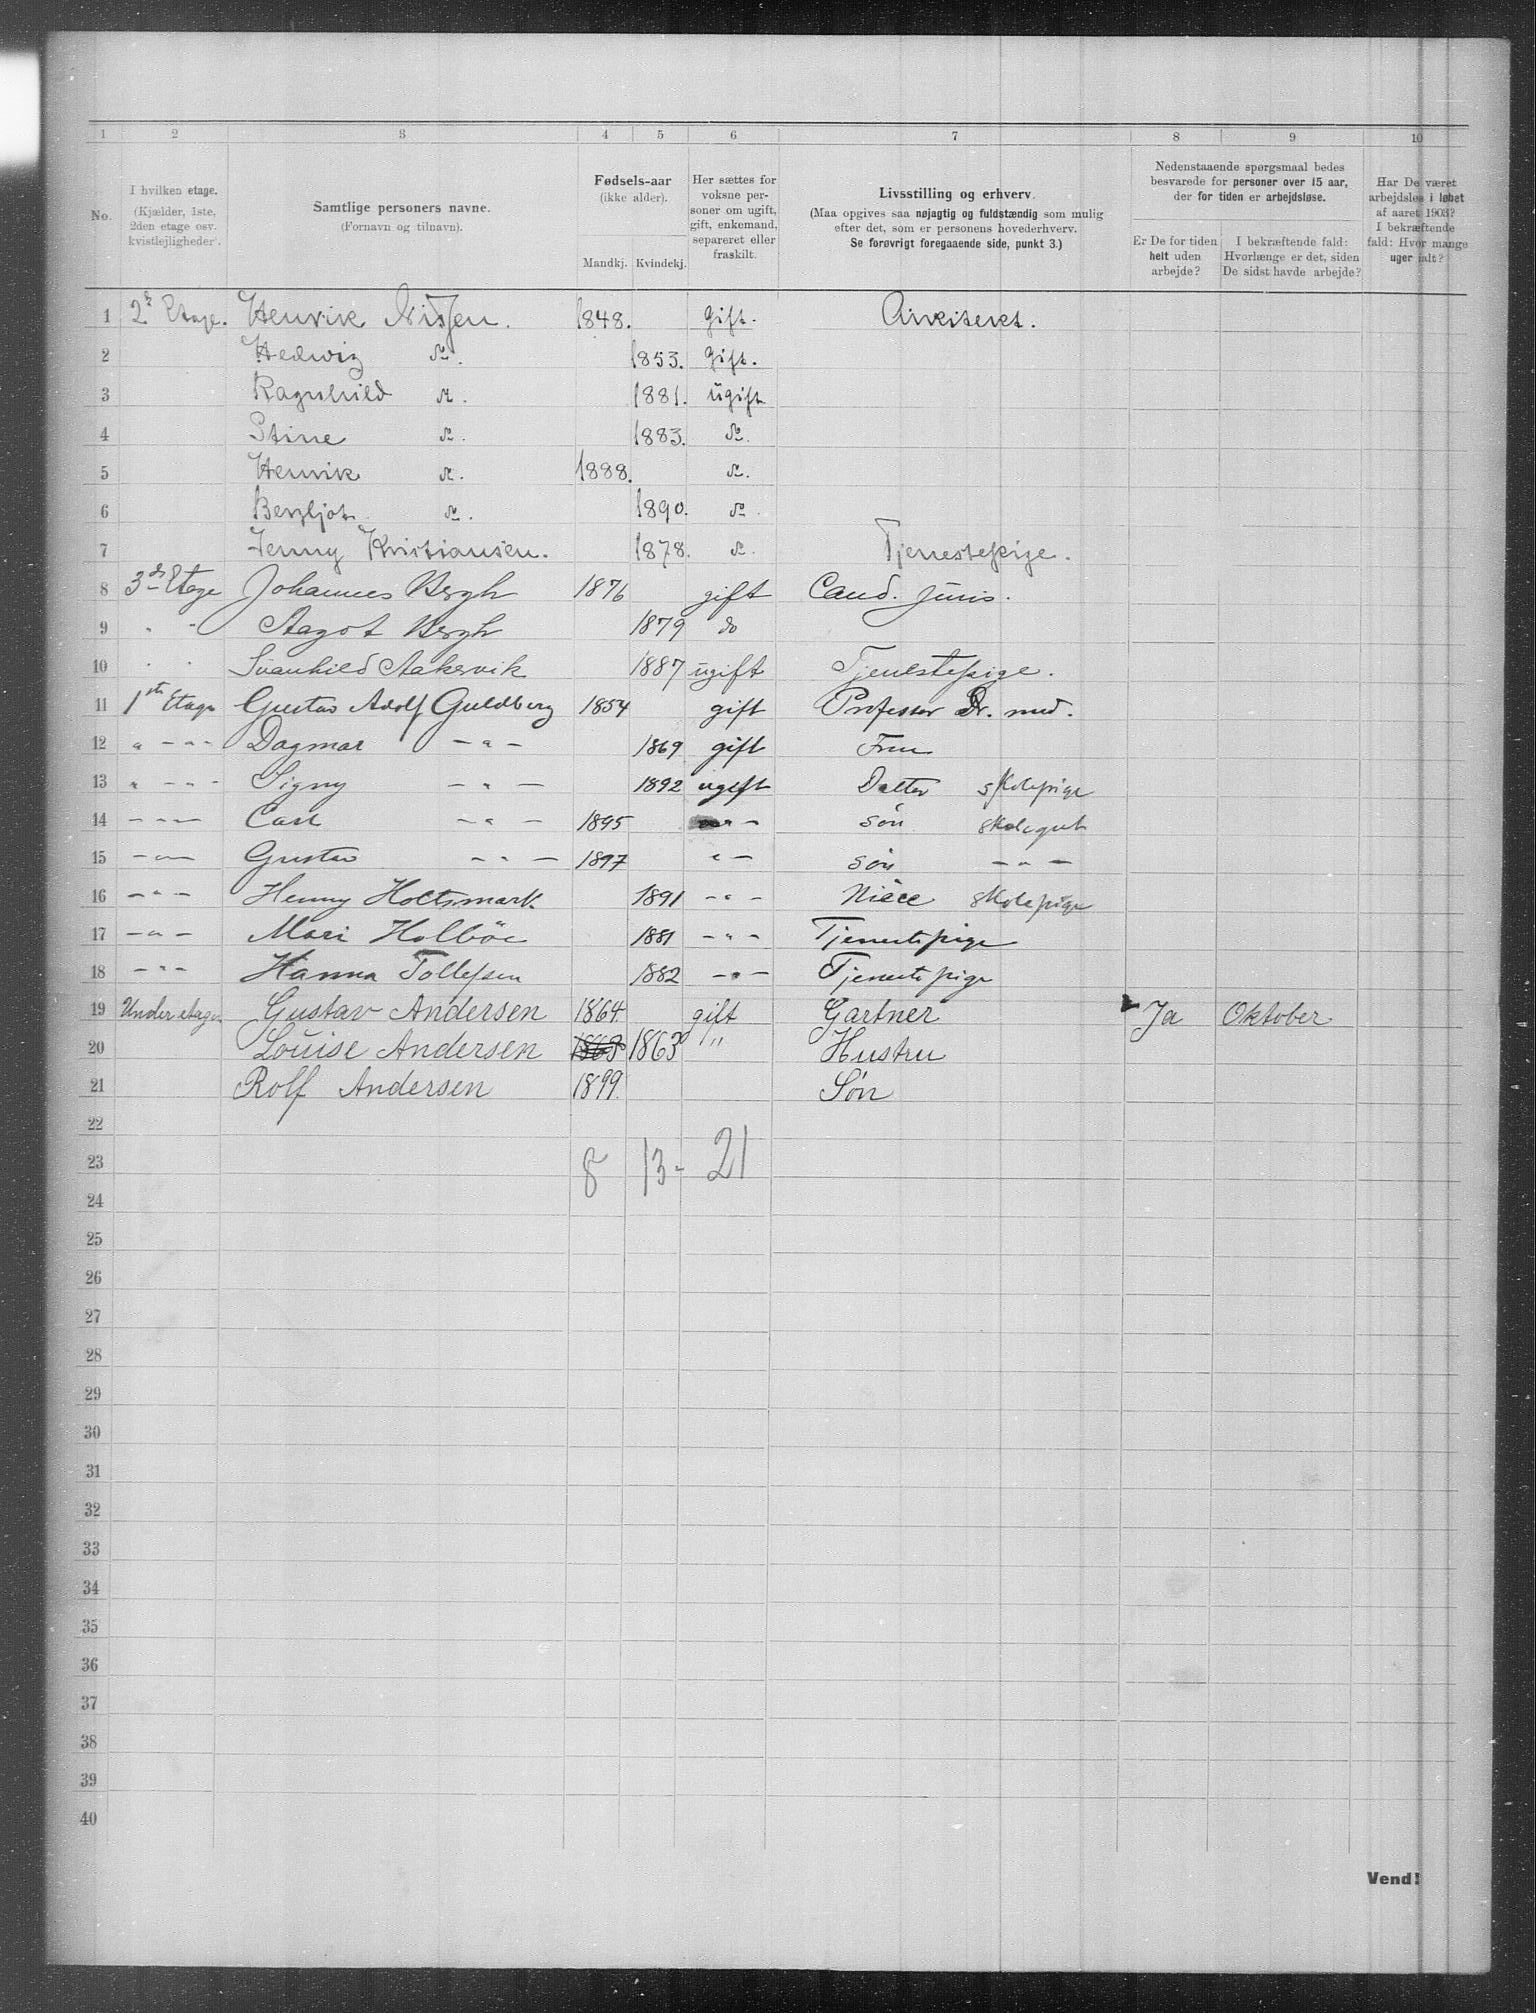 1 2 3 4 5 6 7 8 9 10
No.
I hvilken etage.
(Kjælder, 1ste,
2den etage osv.
kvistlejligheder).
Samtlige personers navne.
(Fornavn og tilnavn).
Fødsels-aar
(ikke alder).
Mandkj. Kvindekj.
Her sættes for
voksne per-
soner om ugift,
gift, enkemand,
separeret eller
fraskilt.
Livsstilling og erhverv.
(Maa opgives saa nøjagtig og fuldstændig som mulig
efter det, som er personens hovederhverv.
Se forøvrigt foregaaende side, punkt 3.)
Nedenstaaende spørgsmaal bedes
besvarede for personer over 15 aar,
der for tiden er arbejdsløse.
Er De for tiden
helt uden
arbejde?
I bekræftende fald:
Hvorlænge er det, siden
De sidst havde arbejde?
Har De været
arbejdsløs i løbet
af aaret 1903?
I bekræftende
fald: Hvor mange
uger ialt?
1 2 Etage. Henrik Nissen. 1848. Gift. Arkitekt.
2 Hedwig do. 1853. Gift.
3 Ragnhild do. 1881. ugift
4 Stine do. 1883. do.
5 Henrik do. 1888. do.
6 Bergljot do. 1890. do.
7 Jenny Kristiansen. 1878. do. Tjenestepige.
8 3de Etage Johannes Bergh 1876 gift Cand. juris.
9 " " Aagot Bergh 1879 do
10 " " Svanhild Aakervik 1887 ugift Tjenestepige.
11 1ste Etage Gustav Adolf Guldberg 1854 gift Professor Dr. med.
12 " - " - Dagmar - " - 1869 gift Fru
13 " - " - Signy - " - 1892 ugift Datter skolepige
14 - " - Carl - " - 1895 - " - søn skolegut
15 - " - Gustav - " - 1897 " - søn - " -
16 - " - Henny Holtsmark 1891 - " - Nièce skolepige
17 - " - Mari Holbøe 1881 - " - Tjenestepige
18 - " - Hanna Tollefsen 1882 - " - Tjenestepige
19 Under etagen Gustav Andersen 1864. gift Gartner Ja Oktober
20 Louise Andersen 1863 1863 " Hustru
21 Rolf Andersen 1899. Søn
22
23 8 13 - 21
24
25
26
27
28
29
30
31
32
33
34
35
36
37
38
39
40
Vend!